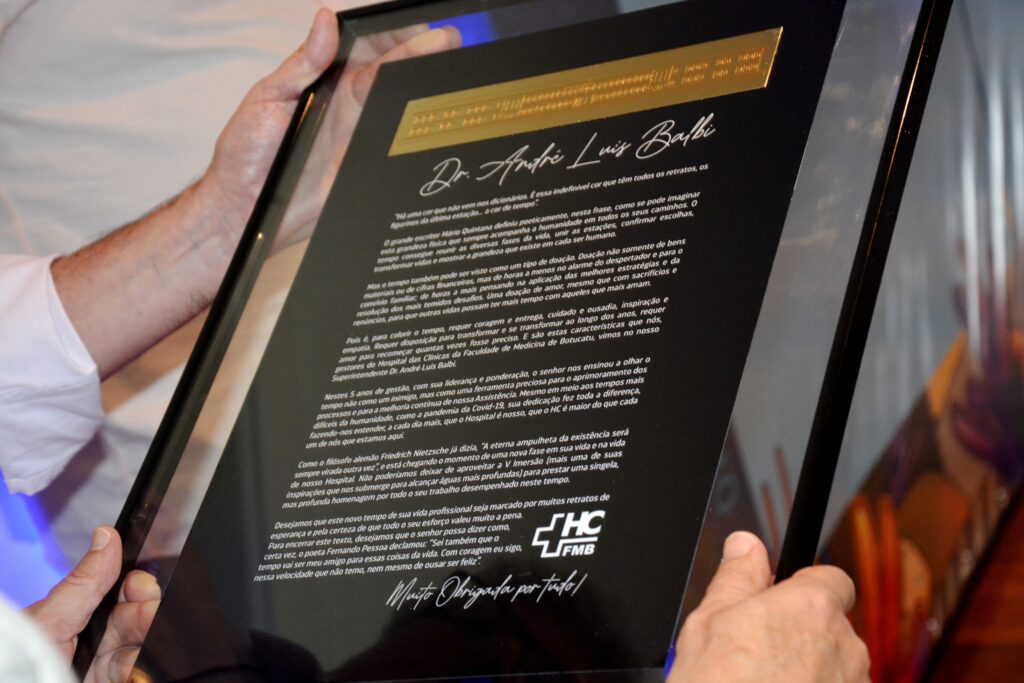 Dr. André Luis Balbi
"Há uma cor que não vem nos dicionários. É essa indefinível cor que têm todos os retratos, os
figurinos da última estação... a cor do tempo".
O grande escritor Mário Quintana definiu poeticamente, nesta frase, como se pode imaginar
esta grandeza física que sempre acompanha a humanidade em todos os seus caminhos. O
tempo consegue reunir as diversas fases da vida, unir as estações, confirmar escolhas,
transformar vidas e mostrar a grandeza que existe em cada ser humano.
Mas o tempo também pode ser visto como um tipo de doação. Doação não somente de bens
materiais ou de cifras financeiras, mas de horas a menos no alarme do despertador e para o
convívio familiar; de horas a mais pensando na aplicação das melhores estratégias e da
resolução dos mais temidos desafios. Uma doação de amor, mesmo que com sacrifícios e
renúncias, para que outras vidas possam ter mais tempo com aqueles que mais amam.
Pois é, para colorir o tempo, requer coragem e entrega, cuidado e ousadia, inspiração e
empatia. Requer disposição para transformar e se transformar ao longo dos anos, requer
amor para recomeçar quantas vezes fosse preciso. E são estas características que nós,
gestores do Hospital das Clínicas da Faculdade de Medicina de Botucatu, vimos no nosso
Superintendente Dr. André Luis Balbi.
Nestes 5 anos de gestão, com sua liderança e ponderação, o senhor nos ensinou a olhar o
tempo não como um inimigo, mas como uma ferramenta preciosa para o aprimoramento dos
processos e para a melhoria contínua de nossa Assistência. Mesmo em meio aos tempos mais
difíceis da humanidade, como a pandemia da Covid-19, sua dedicação fez toda a diferença,
fazendo-nos entender, a cada dia mais, que o Hospital é nosso, que o HC é maior do que cada
um de nós que estamos aqui.
Como o filósofo alemão Friedrich Nietzsche já dizia, "A eterna ampulheta da existência será
sempre virada outra vez", e está chegando o momento de uma nova fase em sua vida e na vida
de nosso Hospital. Não poderíamos deixar de aproveitar a V Imersão (mais uma de suas
inspirações que nos submerge para alcançar águas mais profundas) para prestar uma singela,
mas profunda homenagem por todo o seu trabalho desempenhado neste tempo.
Desejamos que este novo tempo de sua vida profissional seja marcado por muitos retratos de
esperança e pela certeza de que todo o seu esforço valeu muito a pena.
Para encerrar este texto, desejamos que o senhor possa dizer como,
certa vez, o poeta Fernando Pessoa declamou: "Sei também que o
tempo vai ser meu amigo para essas coisas da vida. Com coragem eu sigo,
nessa velocidade que não temo, nem mesmo de ousar ser feliz".
HC
FMB
Muito Obrigada por tudo!